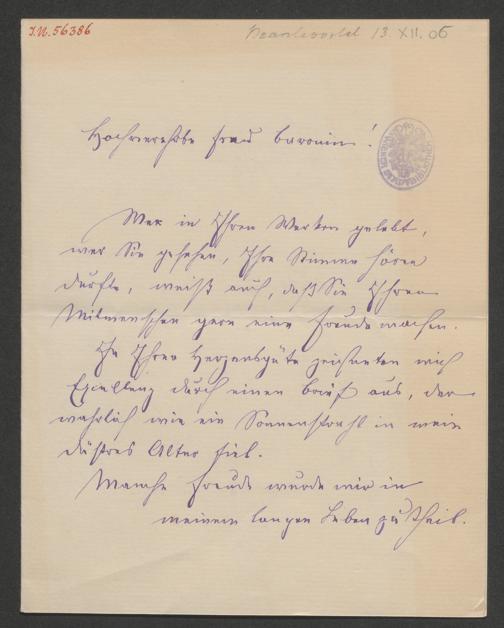 I.N. 56386
Beantwortet 13. XII. 05
Hochverehrte Frau Baronin!
Wer in Ihren Werken gelebt,
wer Sie gesehen, Ihre Stimme hören
durfte, weiß auch, daß Sie Ihren
Mitmenschen gern eine Freude machen.
In Ihrer Herzensgüte zeichneten mich
Excellenz durch einen Brief aus, der
wahrlich wie ein Sonnenstrahl in mein
düstres Alter fiel.
Manche Freude wurde mir in
meinem langen Leben zu Theil.